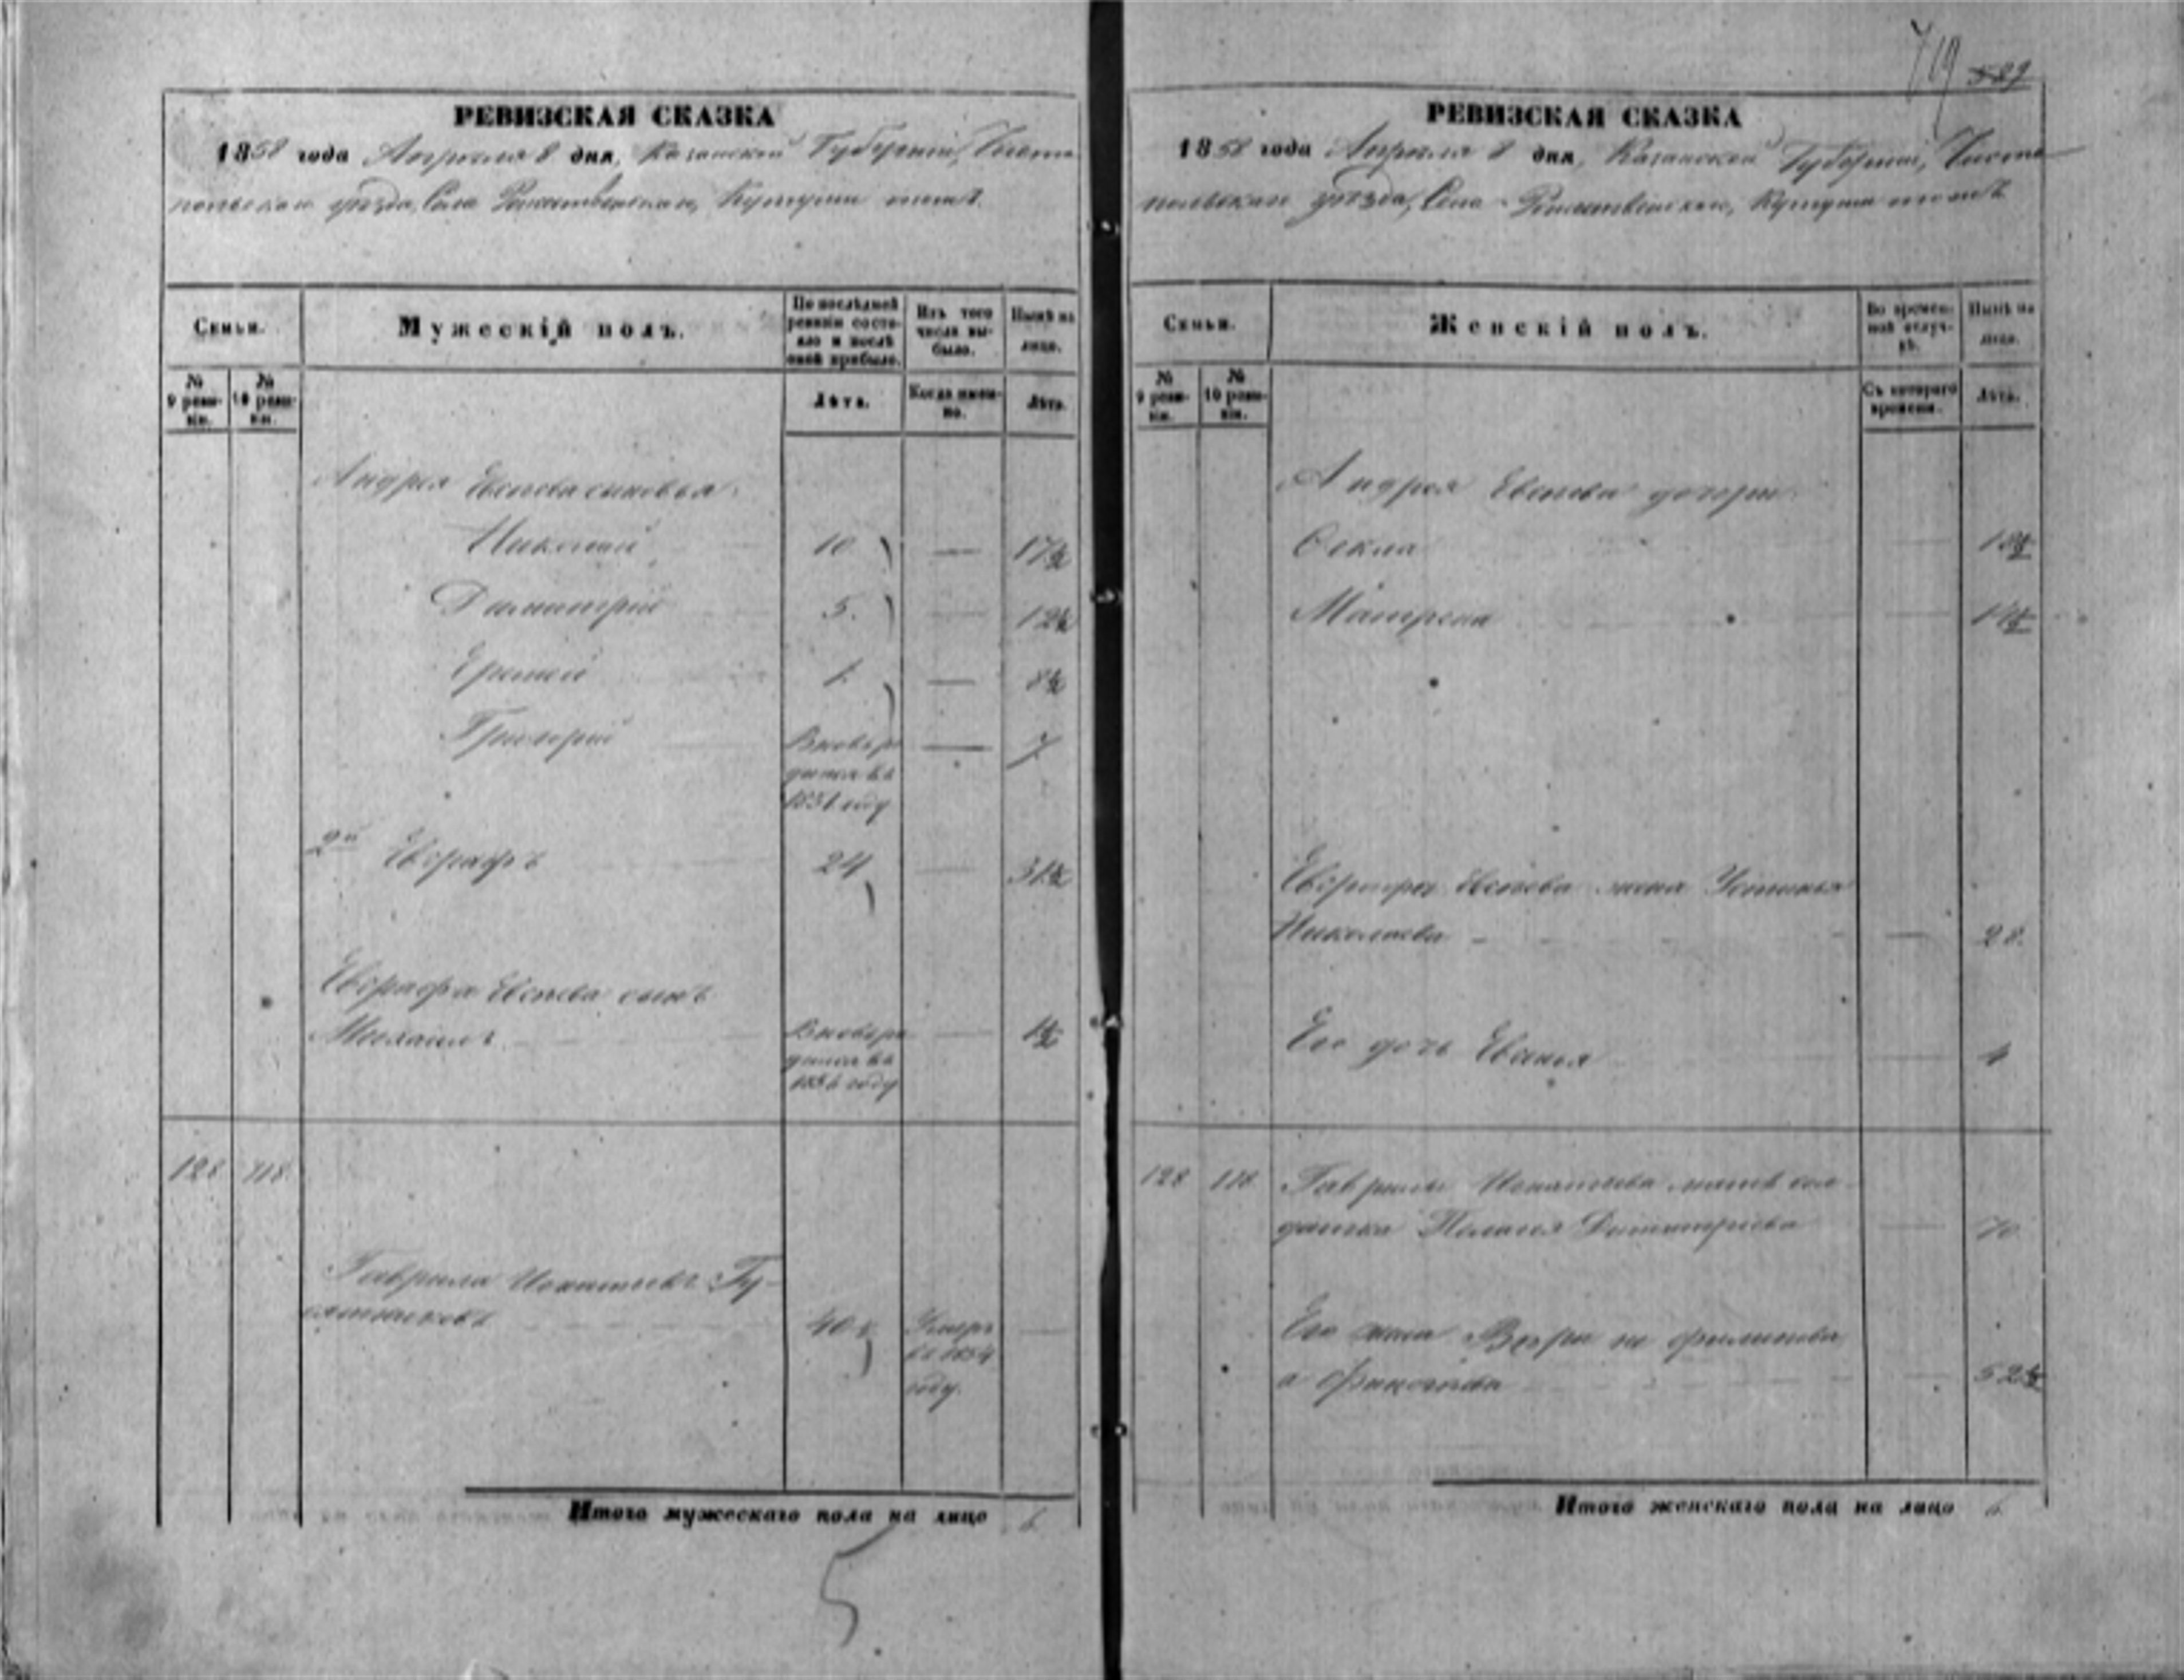 719 589
РЕВИЗСКАЯ СКАЗКА
1858 года Апреля 8 дня, Казанской Губернии, Чисто-
польскаго уѣзда, Села Рождественскаго, Кутуши тожъ.
Семьи.
Мужескій полъ.
По послѣдней ревизіи состояло и послѣ оной прибыло.
Изъ того числа выбыло.
Нынѣ на лицо.
№ 9 ревизіи.
№ 10 ревизіи.
Лѣта.
Когда именно.
Лѣта.
Андрея Евсеева сыновья
Николай 10 — 17½
Димитрій 5. — 12½
Еремей 1. — 8½
Григорій Вновь ро- — 7
дился въ
1851 году
2й Евграфъ 24 — 31½
Евграфа Евсеева сынъ
Михаилъ Вновь ро- — 1½
дился въ
1856 году
128 118.
Гаврила Игнатьевъ
40 Умеръ —
въ 1854
году.
Итого мужескаго пола на лицо 6.
5
РЕВИЗСКАЯ СКАЗКА
1858 года Апреля 8 дня, Казанской Губернии, Чисто-
польскаго уѣзда, Села Рождественскаго, Кутуши тожъ
Семьи.
Женскій полъ.
Во временной отлучкѣ.
Нынѣ на лицо.
№ 9 ревизіи.
№ 10 ревизіи.
Съ котораго времени.
Лѣта.
Андрея Евсеева дочери
Фекла
Матрена
Евграфа Евсеева жена Устинья
Николаева — 28.
Его дочь 4
128 118 Гаврилы Игнатьева мать сол-
датка Пелагея Димитриева 70
Его жена не Филипова
а 52½
Итого женскаго пола на лицо 6.